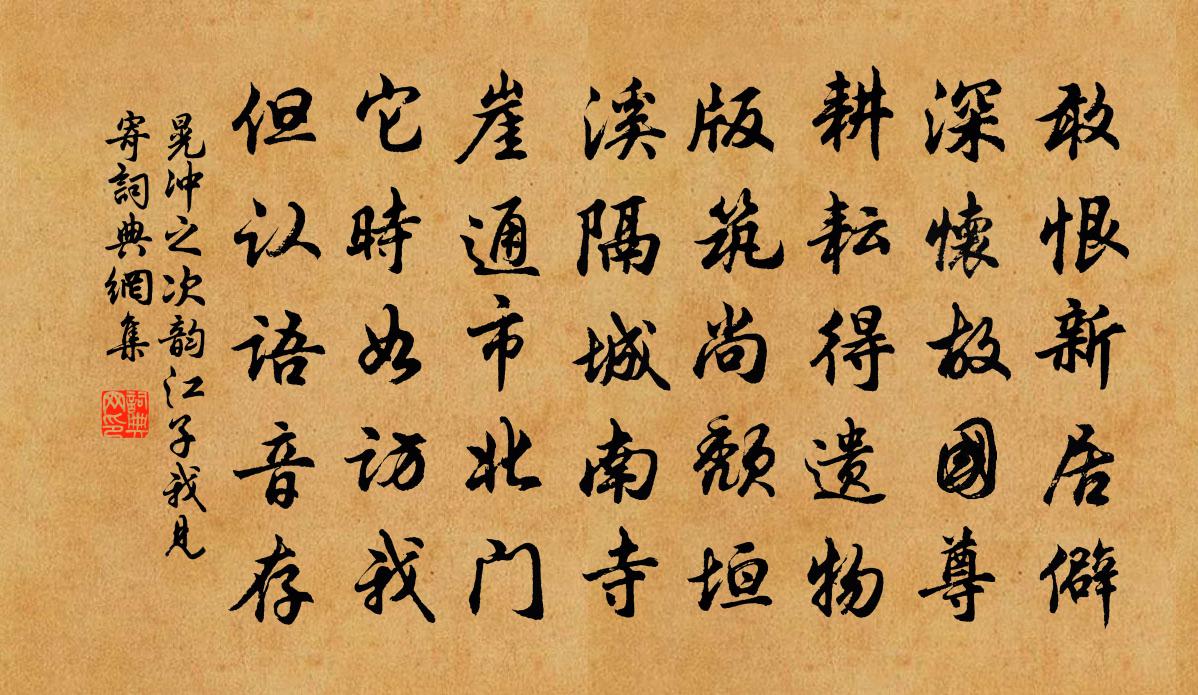 敢恨新居僻
深懷故國尊
耕耘得遗物
版筑尚颓垣
溪隔城南寺
崖通市北门
它時如访我
但认语音存
晁冲之次韵江子我見
寄詞典網集
詞典网印